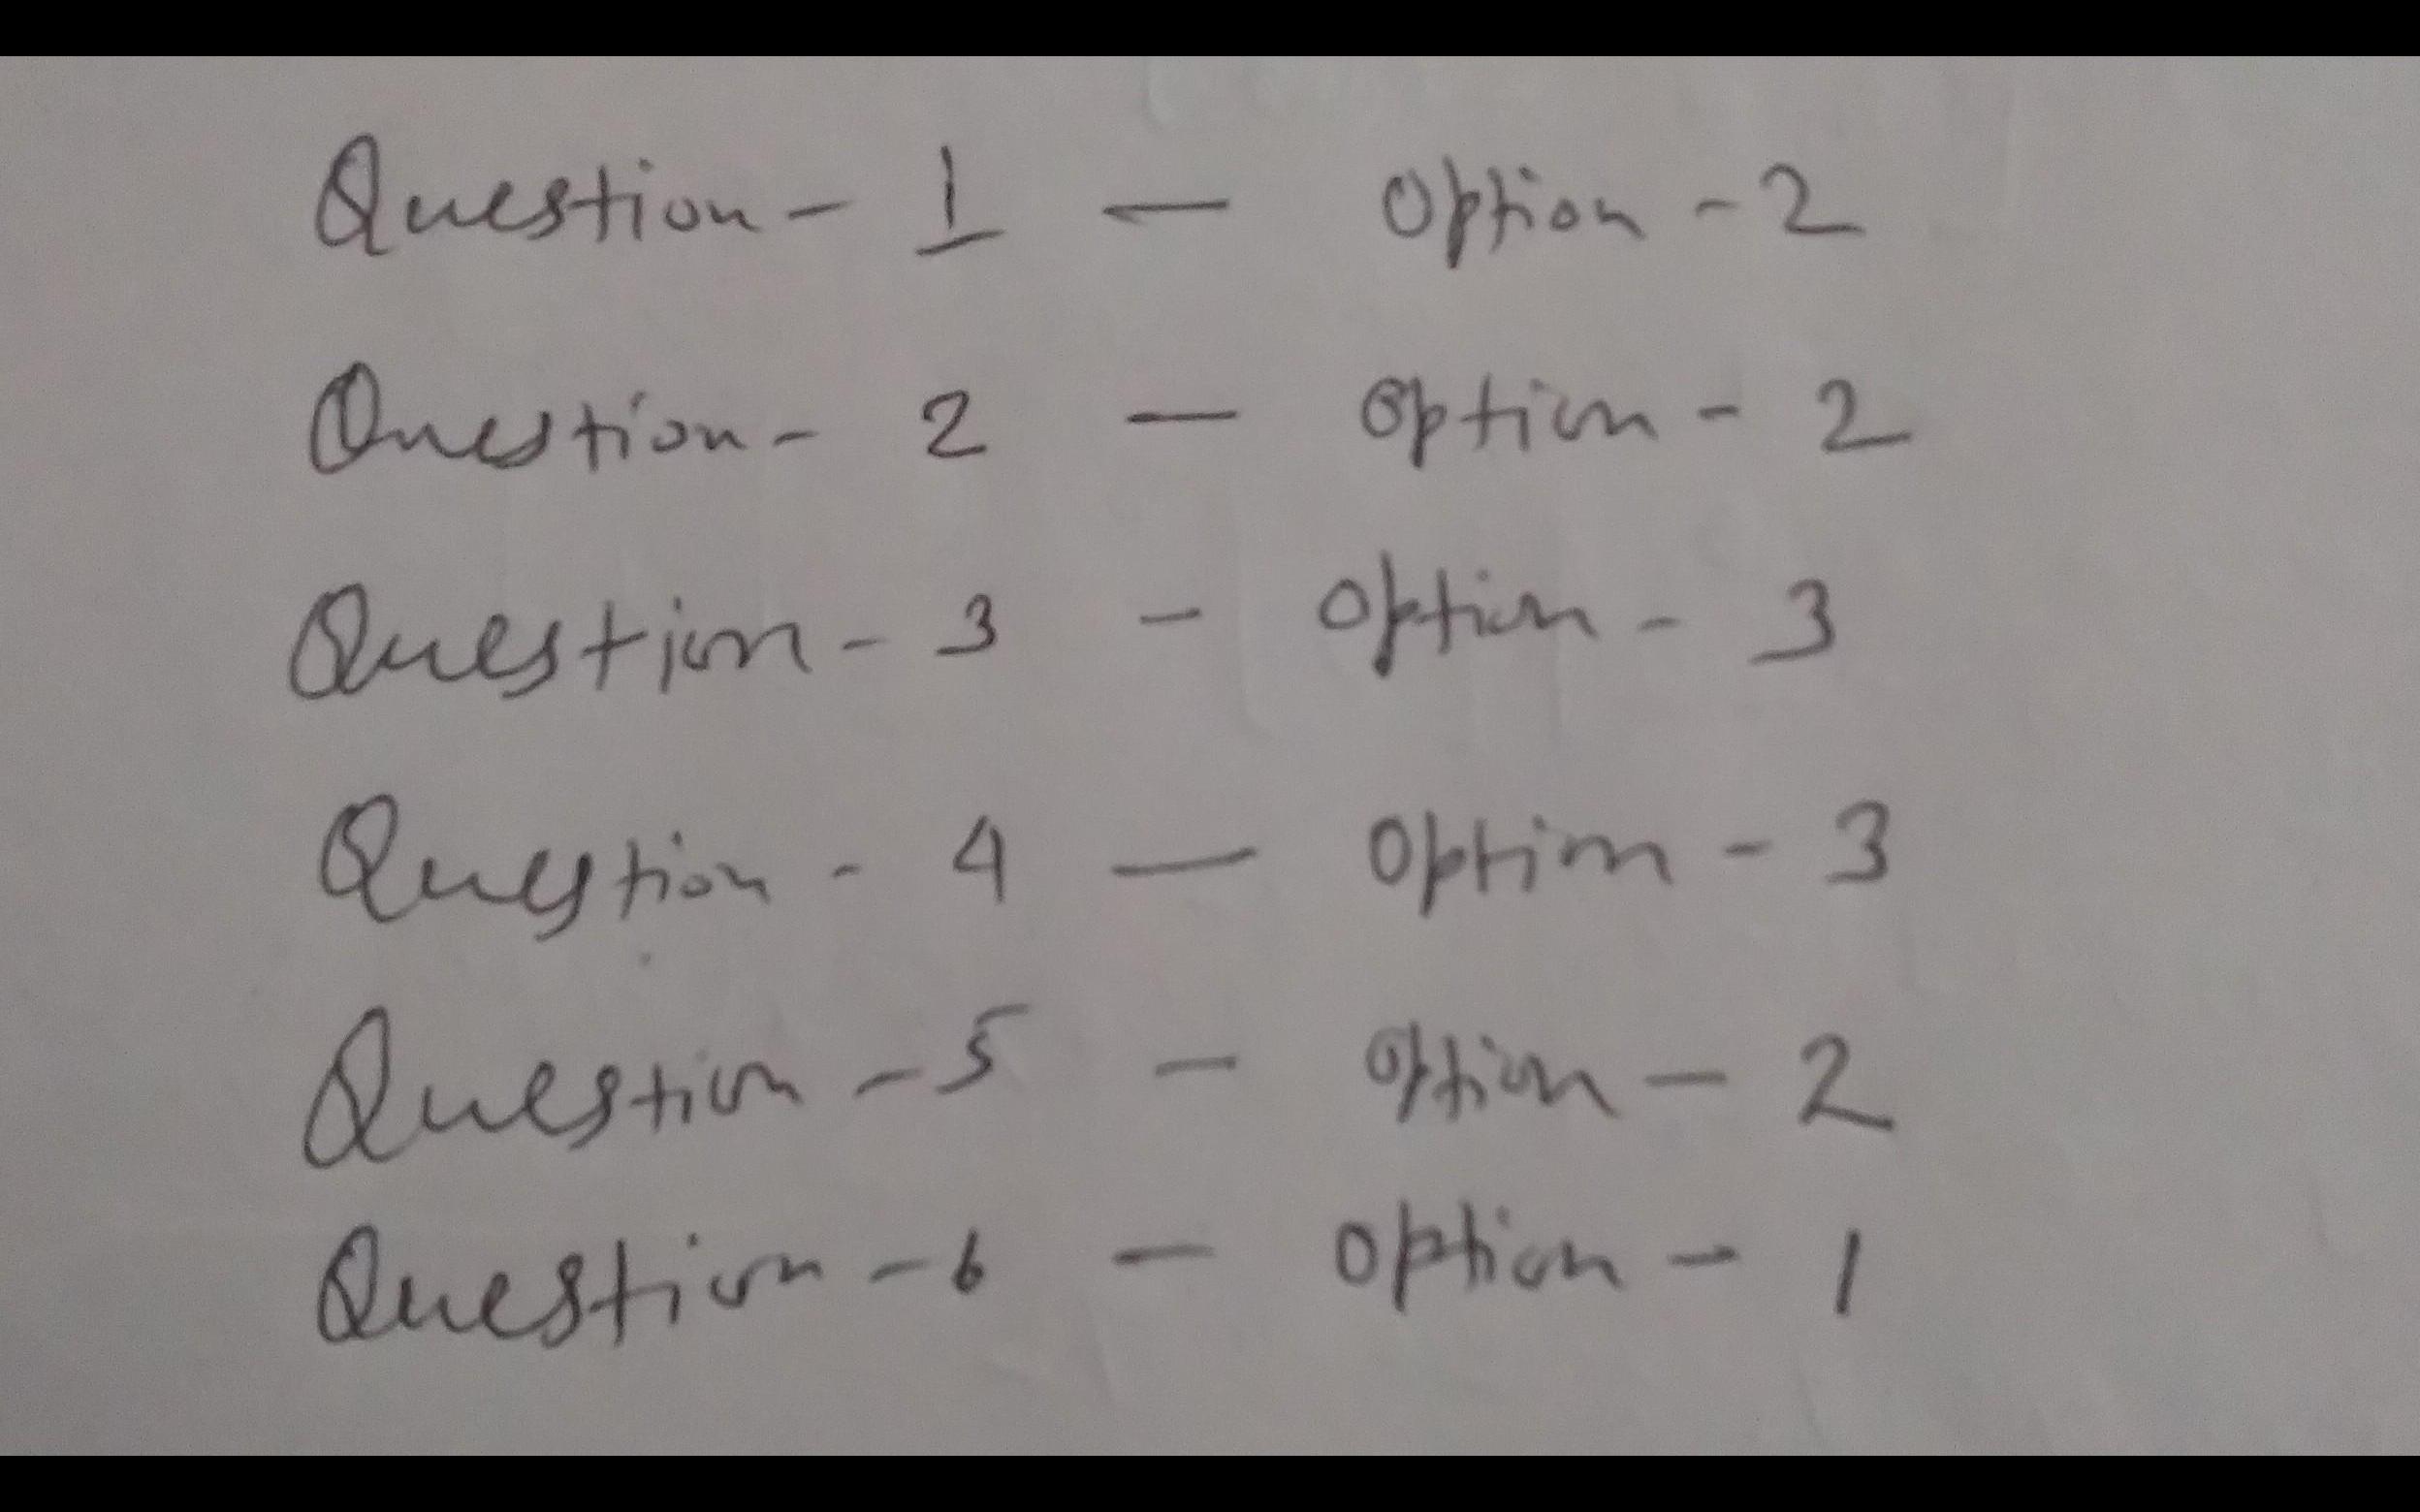 Question - 1 — Option - 2
Question - 2 — Option - 2
Question - 3 - Option - 3
Question - 4 — Option - 3
Question - 5 - Option - 2
Question - 6 - Option - 1